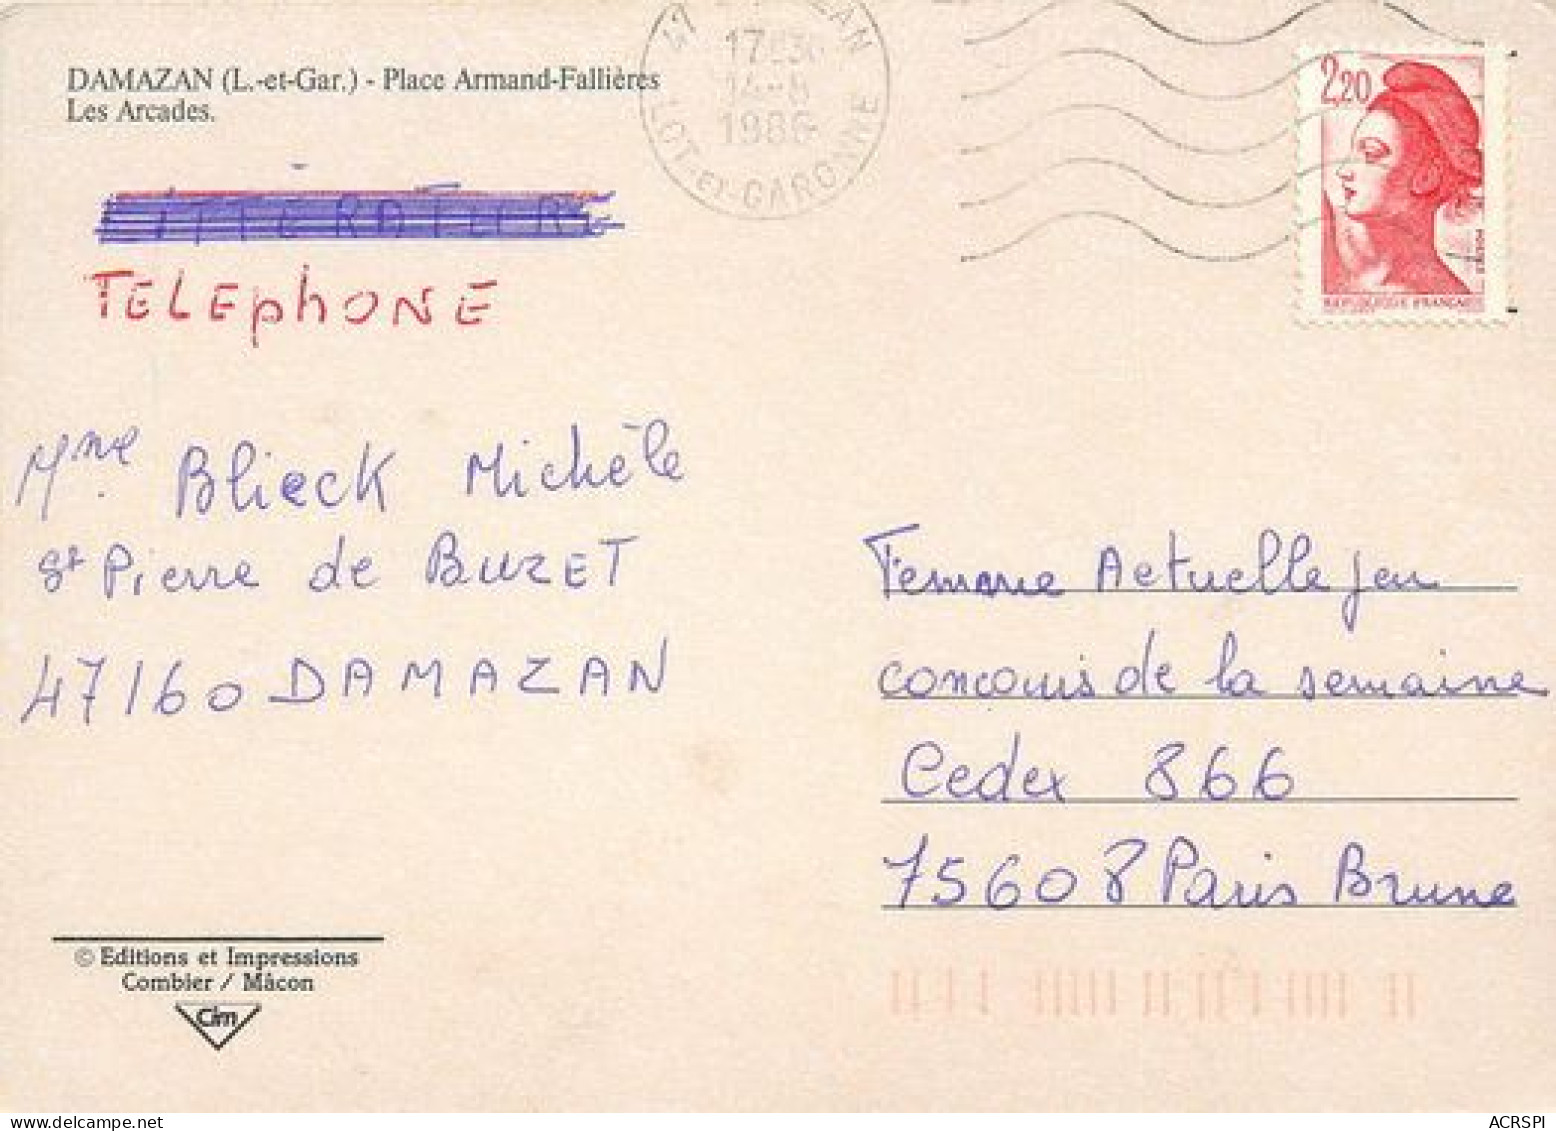 DAMAZAN (L.-et-Gar.) - Place Armand-Fallières
Les Arcades.
LOT-et-GARONNE
2,20
REPUBLIQUE FRANÇAISE
LITTERATURE
TELEphONE
Mme Blieck Michèle
St Pierre de BUZET
47160 DAMAZAN
Femme Actuelle jeu
concours de la semaine
Cedex 866
75608 Paris Brune
© Editions et Impressions
Combier / Mâcon
Cim
ACRSPI